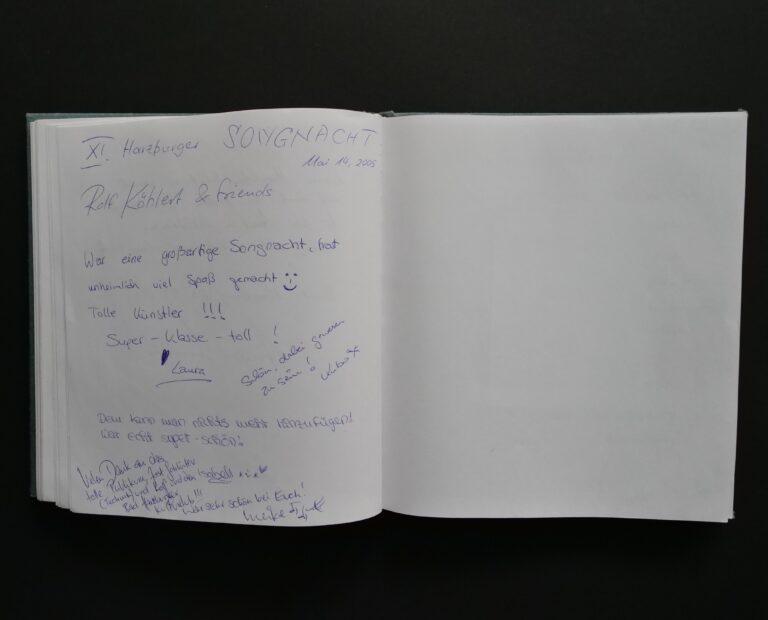 XI. Harzburger SONGNACHT
Mai 14, 2005
Rolf Köhlert & friends
War eine großartige Songnacht, hat
unheimlich viel Spaß gemacht
Tolle Künstler !!!
Super - klasse - toll !
Laura
Schön, dabei gewesen
zu sein!
Dem kann man nichts mehr hinzufügen!
War echt super-schön!
Vielen Dank an das
tolle Publikum,
Technik und Rolf und den
Bad Harzburger
Kulturclub!!!
War sehr schön bei Euch!